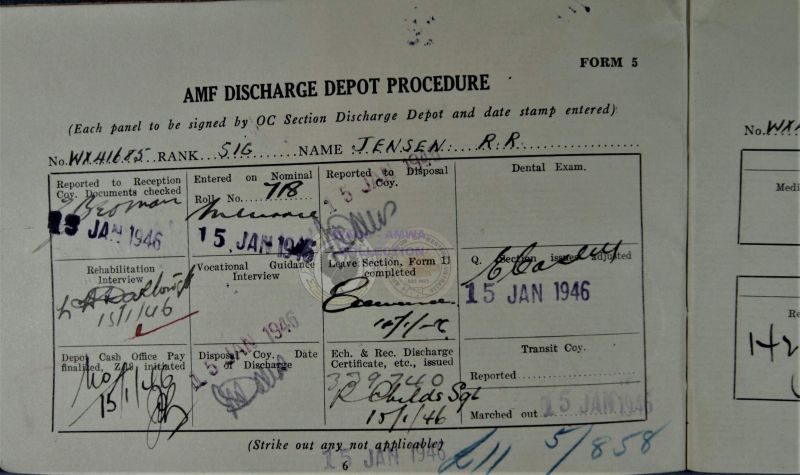 FORM 5
AMF DISCHARGE DEPOT PROCEDURE
(Each panel to be signed by OC Section Discharge Depot and date stamp entered)
No. WX41685 RANK SIG NAME JENSEN R.R.
Reported to Reception
Coy. Documents checked
15 JAN 1946
Entered on Nominal
Roll No. 718
15 JAN 1946
Reported to Disposal
Coy.
15 JAN 1946
Dental Exam.
Rehabilitation
Interview
15/1/46
Vocational Guidance
Interview
Leave Section, Form 11
completed
Q. Section issues adjusted
15 JAN 1946
Depot Cash Office Pay
finalized, initiated
15/1/46
Disposal Coy. Date
of Discharge
15 JAN 1946
Ech. & Rec. Discharge
Certificate, etc., issued
339740
R Childs Sgt
15/1/46
Transit Coy.
Reported
Marched out 15 JAN 1946
(Strike out any not applicable)
15 JAN 1946
5/858
6
No. WX4
Medi
Re